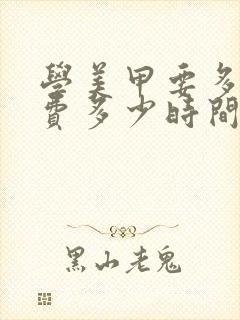 學美甲要多
費多少時間
黑山老鬼